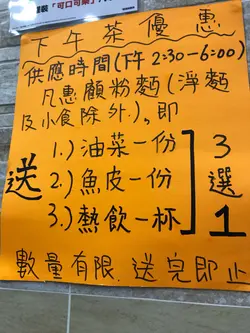 裝「可口可樂」
下午茶優惠
供應時間(下午2:30-6:00)
凡惠顧粉麵(淨麵
及小食除外.),即
送
1.)油菜一份
2.)魚皮一份
3.)熱飲一杯
3選1
數量有限.送完即止